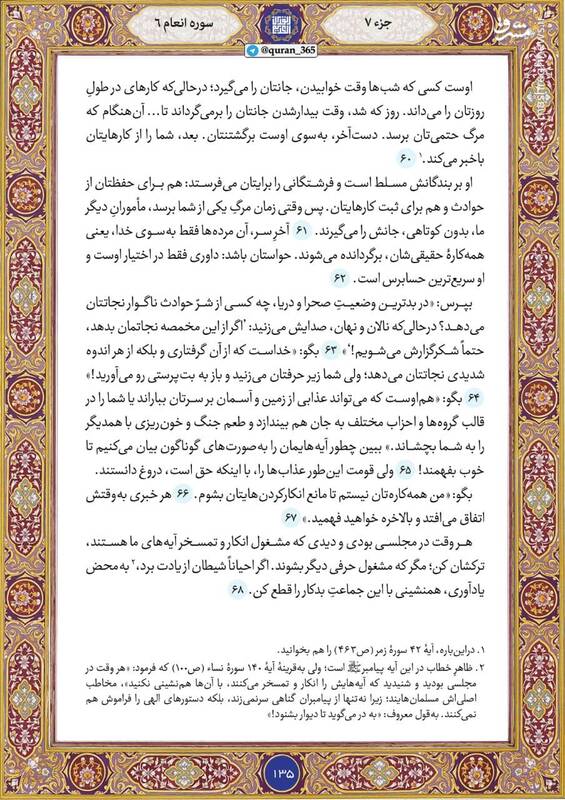 جزء ۷
سوره انعام ۶
مشرق
@quran_365
اوست کسی که شب‌ها وقت خوابیدن، جانتان را می‌گیرد؛ درحالی‌که کارهای در طولِ
روزتان را می‌داند. روز که شد، وقت بیدارشدن جانتان را برمی‌گرداند تا... آن‌هنگام که
مرگ حتمی‌تان برسد. دست‌آخر، به‌سوی اوست برگشتنتان. بعد، شما را از کارهایتان
باخبر می‌کند.۱ ۶۰
او بر بندگانش مسلط است و فرشتگانی را برایتان می‌فرستد: هم برای حفظتان از
حوادث و هم برای ثبت کارهایتان. پس وقتی زمان مرگِ یکی از شما برسد، مأمورانِ دیگر
ما، بدون کوتاهی، جانش را می‌گیرند. ۶۱ آخرِ سر، آن مرده‌ها فقط به‌سوی خدا، یعنی
همه‌کارهٔ حقیقی‌شان، برگردانده می‌شوند. حواستان باشد: داوری فقط در اختیار اوست و
او سریع‌ترین حسابرس است. ۶۲
بپرس: «در بدترین وضعیتِ صحرا و دریا، چه کسی از شرّ حوادث ناگوار نجاتتان
می‌دهد؟ درحالی‌که نالان و نهان، صدایش می‌زنید: 'اگر از این مخمصه نجاتمان بدهد،
حتماً شکرگزارش می‌شویم!'» ۶۳ بگو: «خداست که از آن گرفتاری و بلکه از هر اندوه
شدیدی نجاتتان می‌دهد؛ ولی شما زیر حرفتان می‌زنید و باز به بت‌پرستی رو می‌آورید!»
۶۴ بگو: «هم‌اوست که می‌تواند عذابی از زمین و آسمان بر سرتان بباراند یا شما را در
قالب گروه‌ها و احزاب مختلف به جان هم بیندازد و طعم جنگ و خون‌ریزی با همدیگر
را به شما بچشاند.» ببین چطور آیه‌هایمان را به‌صورت‌های گوناگون بیان می‌کنیم تا
خوب بفهمند! ۶۵ ولی قومت این‌طور عذاب‌ها را، با اینکه حق است، دروغ دانستند.
بگو: «من همه‌کاره‌تان نیستم تا مانع انکارکردن‌هایتان بشوم. ۶۶ هر خبری به‌وقتش
اتفاق می‌افتد و بالاخره خواهید فهمید.» ۶۷
هر وقت در مجلسی بودی و دیدی که مشغول انکار و تمسخر آیه‌های ما هستند،
ترکشان کن؛ مگر که مشغول حرفی دیگر بشوند. اگر احیاناً شیطان از یادت برد،۲ به‌محض
یادآوری، همنشینی با این جماعتِ بدکار را قطع کن. ۶۸
۱. دراین‌باره، آیهٔ ۴۲ سورهٔ زمر (ص۴۶۳) را هم بخوانید.
۲. ظاهرِ خطاب در این آیه پیامبرﷺ است؛ ولی به‌قرینهٔ آیهٔ ۱۴۰ سورهٔ نساء (ص۱۰۰) که فرمود: «هر وقت در
مجلسی بودید و شنیدید که آیه‌هایش را انکار و تمسخر می‌کنند، با آن‌ها هم‌نشینی نکنید»، مخاطب
اصلی‌اش مسلمان‌هایند؛ زیرا نه‌تنها از پیامبران گناهی سرنمی‌زند، بلکه دستورهای الهی را فراموش هم
نمی‌کنند. به‌قول معروف: «به در می‌گوید تا دیوار بشنود!»
۱۳۵